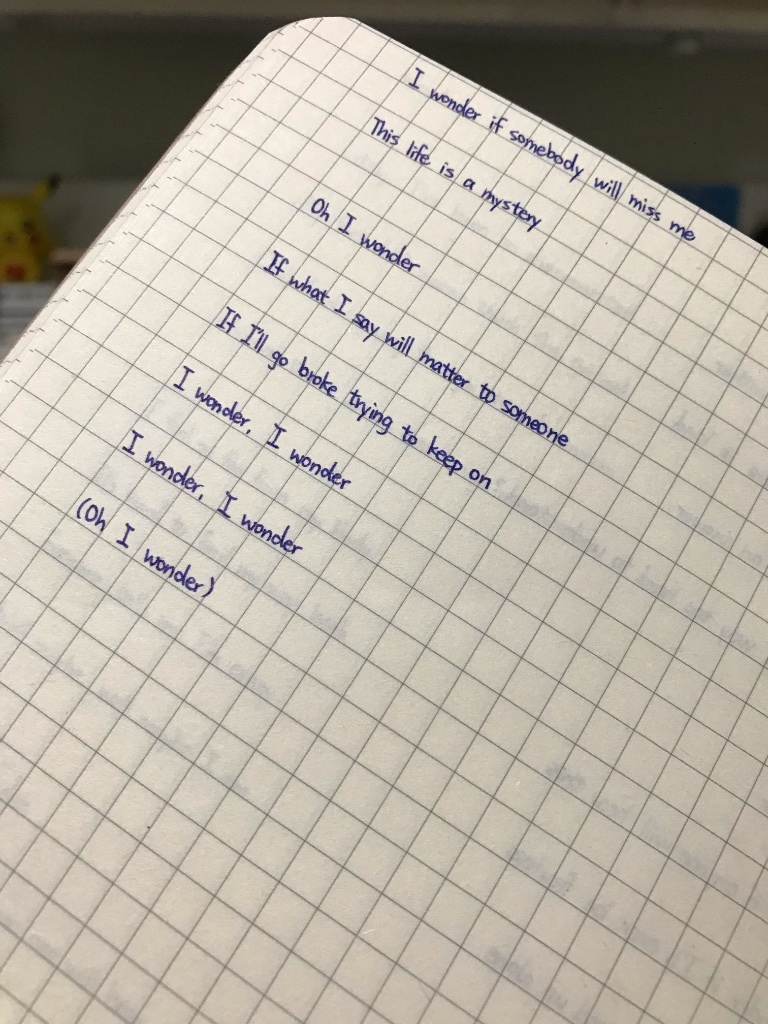 I wonder if somebody will miss me
This life is a mystery
Oh I wonder
If what I say will matter to someone
If I'll go broke trying to keep on
I wonder, I wonder
I wonder, I wonder
(Oh I wonder)